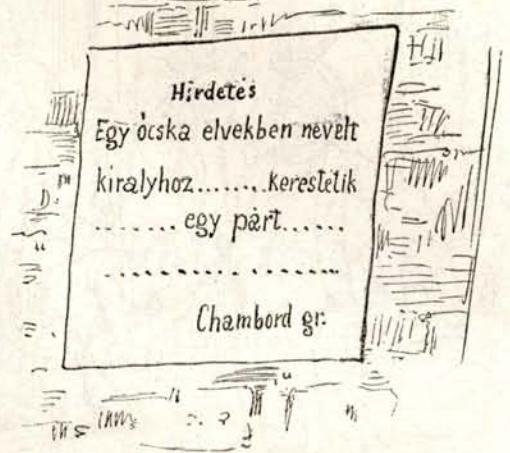 Hirdetés
Egy ócska elvekben nevelt
királyhoz........kerestetik
.......egy párt......
.................
Chambord gr.